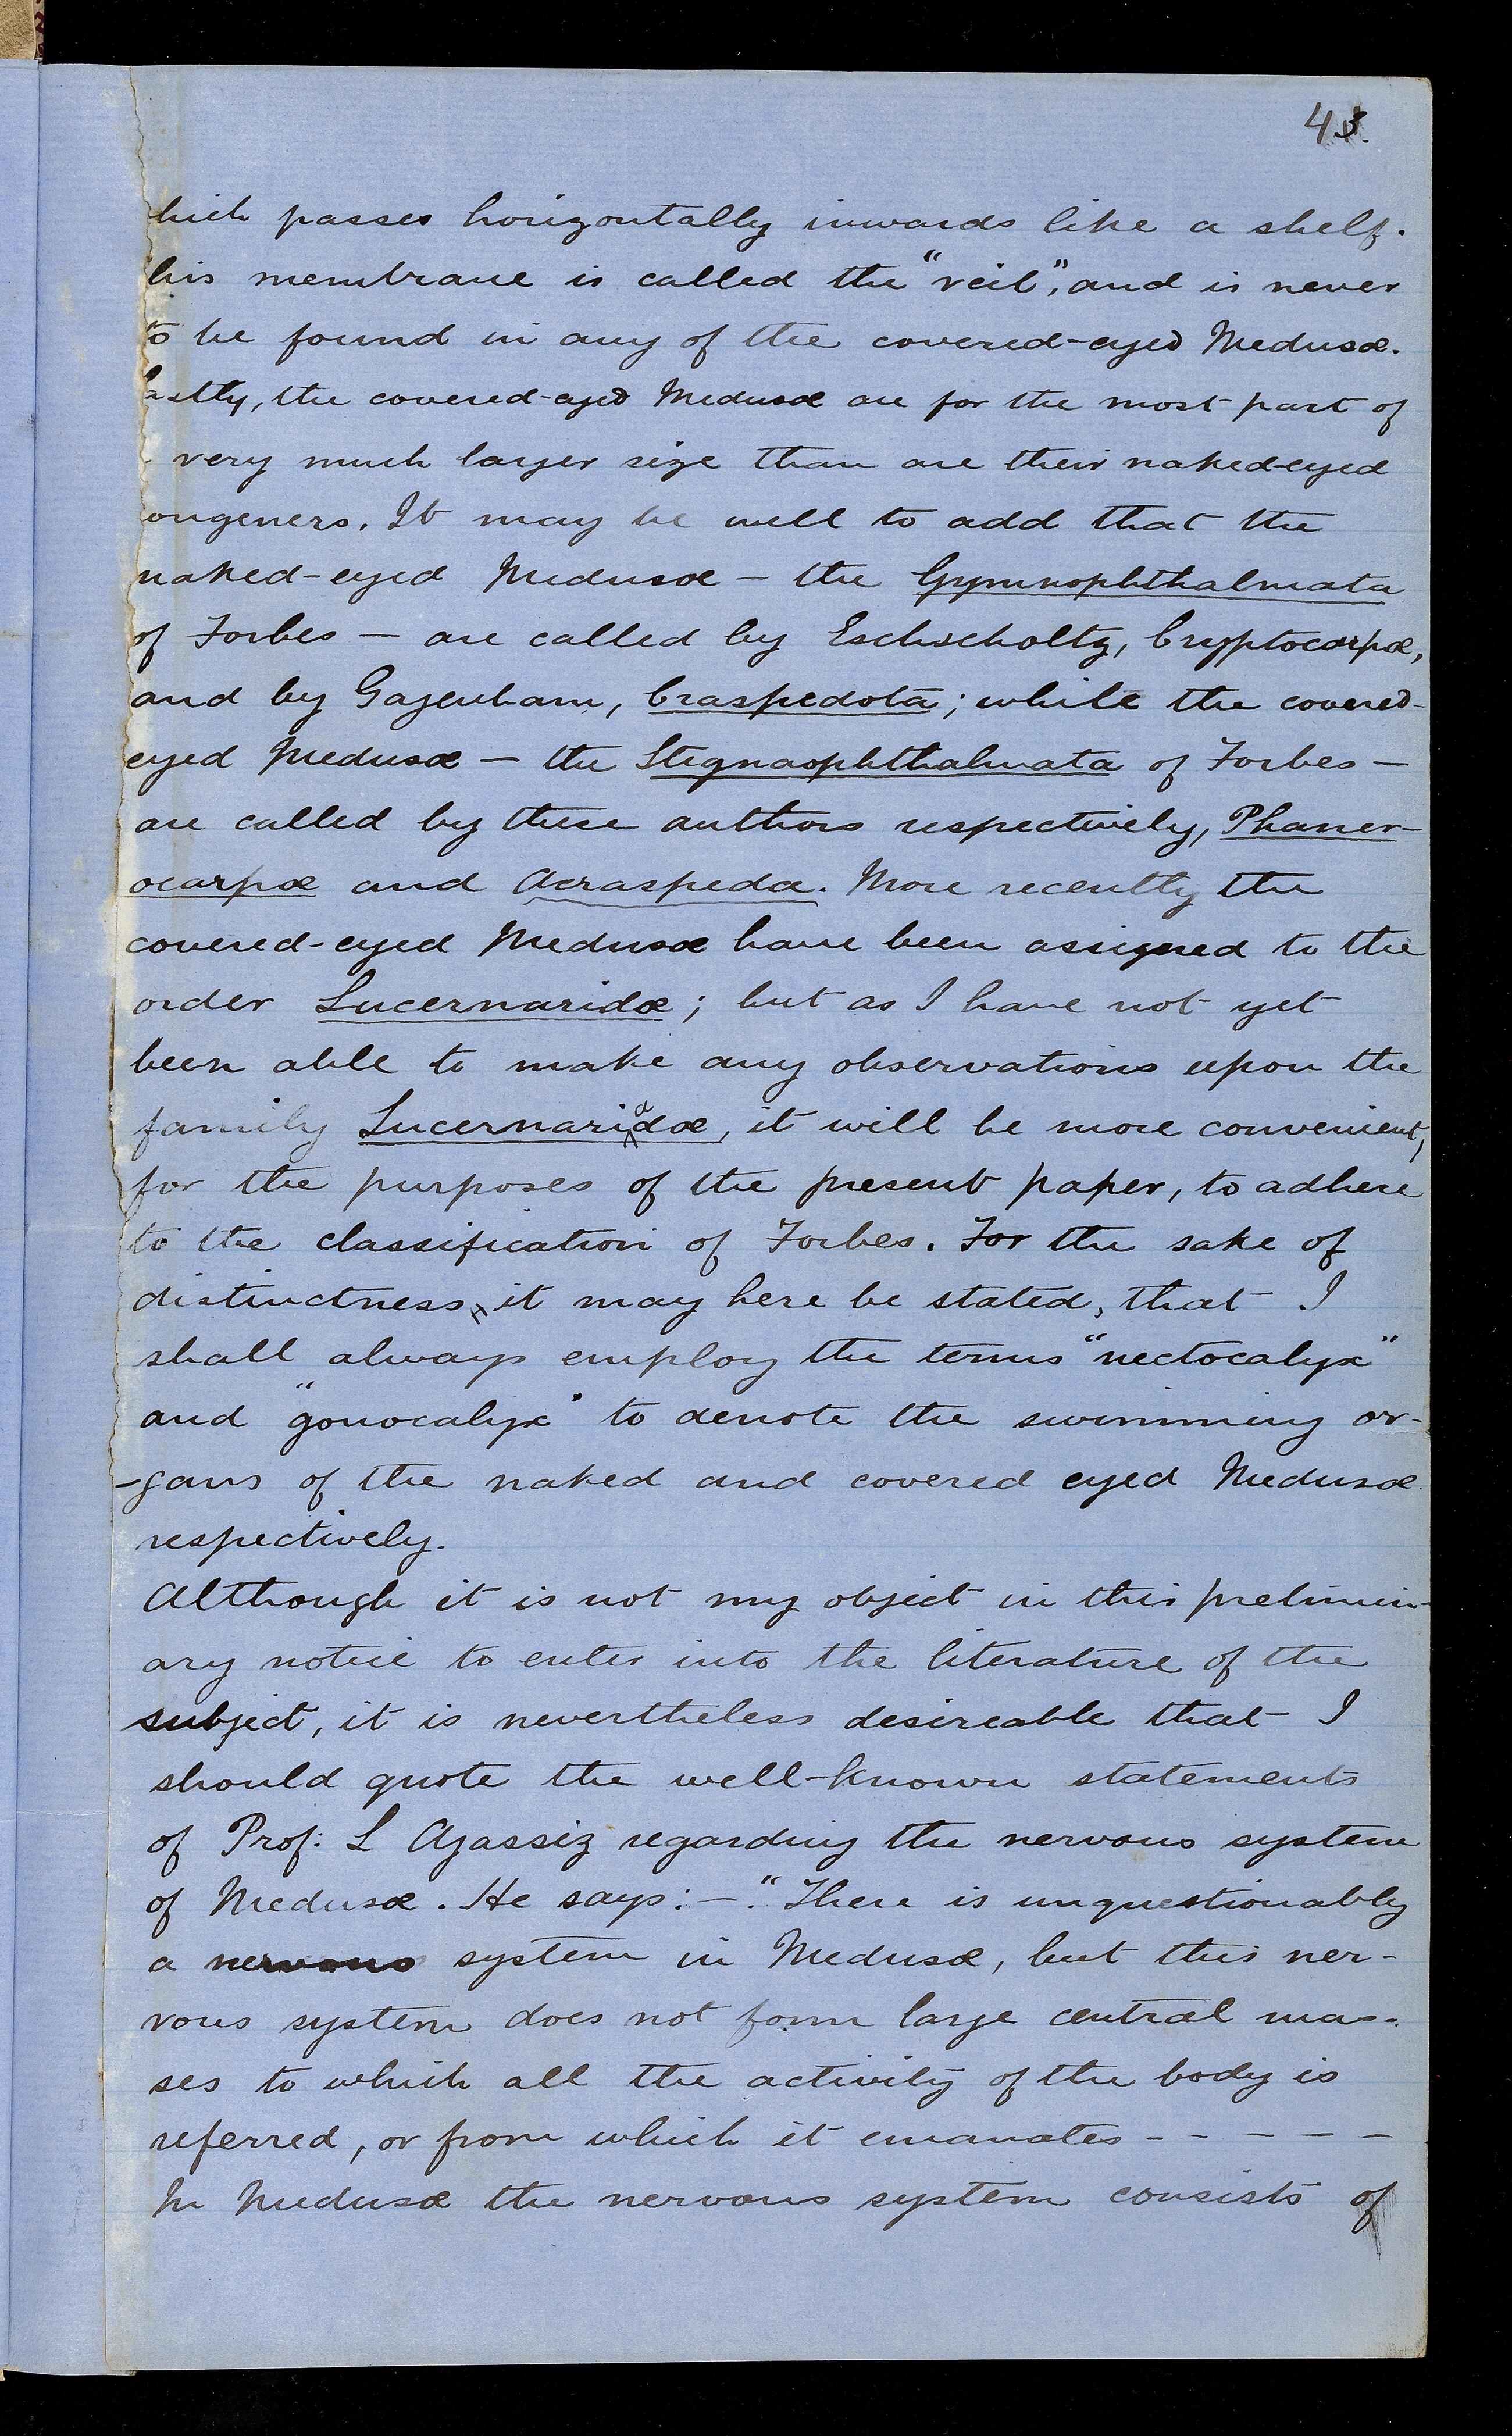 43.
hich passes horizontally inwards like a shelf.
his membrane is called the "veil", and is never
to be found in any of the covered-eyed Medusæ.
astly, the covered-eyed Medusæ are for the most part of
very much larger size than are their naked-eyed
ongeners. It may be well to add that the
naked-eyed Medusæ — the Gymnophthalmata
of Forbes — are called by Eschscholtz, Cryptocarpæ,
and by Gagenbam, Craspedota; while the covered-
eyed Medusæ — the Stegnaophthalmata of Forbes —
are called by these authors respectively, Phaner-
ocarpæ and Acraspeda. More recently the
covered-eyed Medusæ have been assigned to the
order Lucernaridæ; but as I have not yet
been able to make any observations upon the
family Lucernariadæ, it will be more convenient,
for the purposes of the present paper, to adhere
to the classification of Forbes. For the sake of
distinctness, it may here be stated, that I
shall always employ the terms "nectocalyx"
and "gonocalyx" to denote the swimming or-
-gans of the naked and covered eyed Medusæ
respectively.
Although it is not my object in this prelimin-
ary notice to enter into the literature of the
subject, it is nevertheless desireable that I
should quote the well-known statements
of Prof: L Agassiz regarding the nervous system
of Medusæ. He says: — "There is unquestionably
a nervous system in Medusæ, but this ner-
vous system does not form large central mas-
ses to which all the activity of the body is
referred, or from which it emanates - - - - -
In Medusæ the nervous system consists of